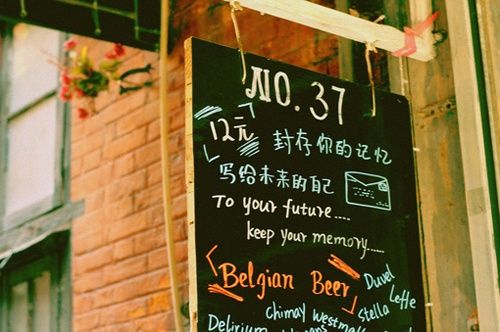 NO. 37
12元 封存你的记忆
写给未来的自己
To your future....
keep your memory......
Belgian Beer
Duvel
Leffe
Stella
chimay westmalle
Delirium